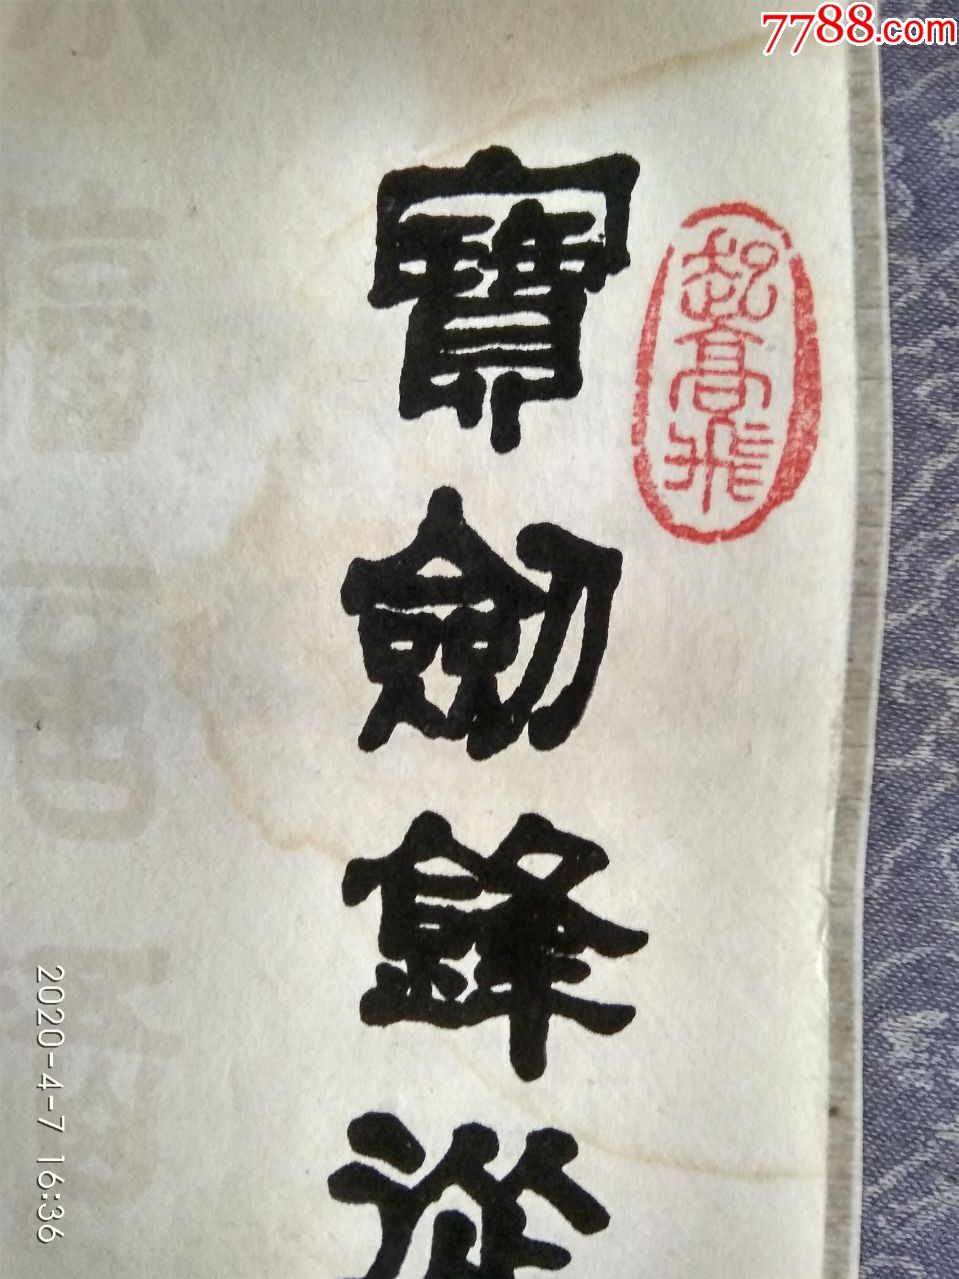 7788.com
寶劍鋒從
起高飛
2020-4-7 16:36